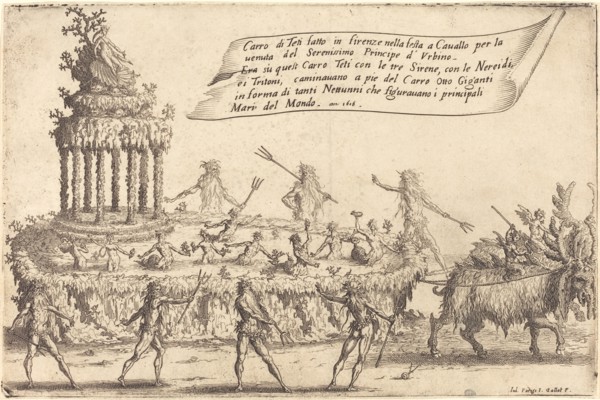 Carro di Teti fatto in firenze nella festa a Cauallo per la
uenuta del Serenissimo Principe d' Vrbino.
Era sù quest Carro Teti con le tre Sirene, con le Nereidi,
ei Tritoni, caminauano a pie del Carro Otto Giganti
in forma di tanti Nettunni che figurauano i principali
Mari del Mondo.
Iul. Parigi I. Callot F.